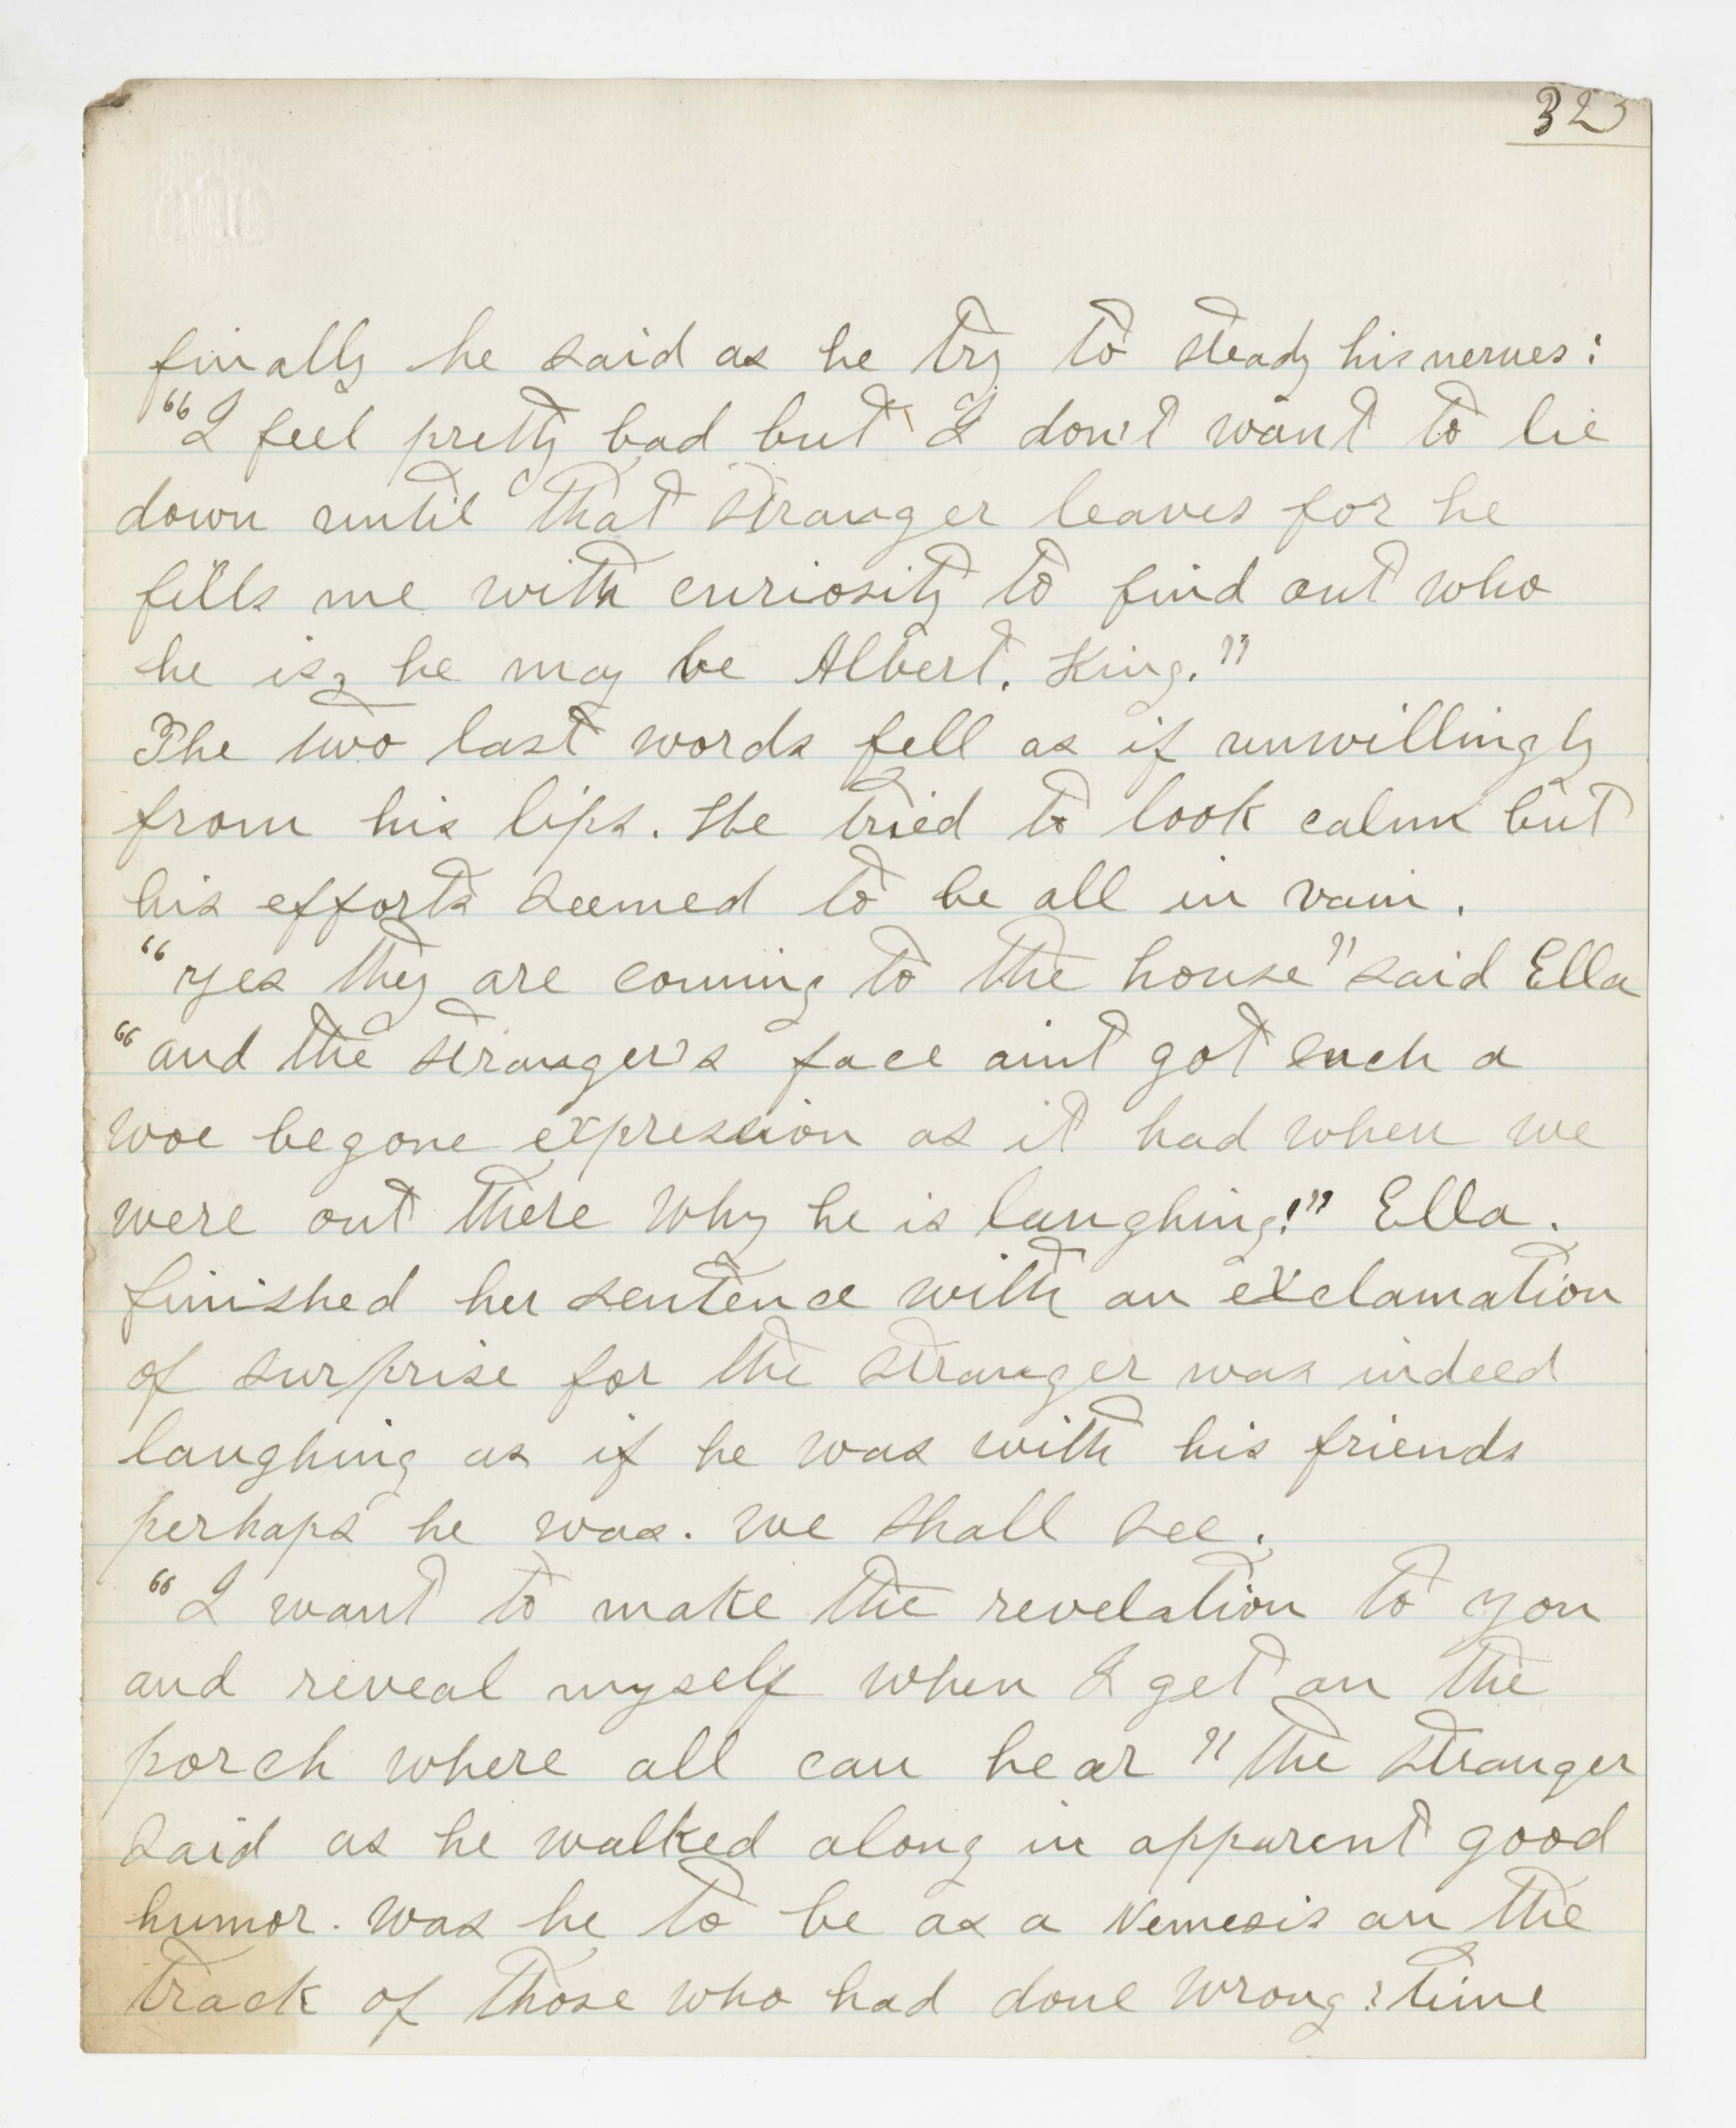 323
finally he said as he try to steady his nerves:
"I feel pretty bad but I don't want to lie
down until that stranger leaves for he
fills me with curiosity to find out who
he is, he may be Albert. King."
The two last words fell as if unwillingly
from his lips. He tried to look calm but
his efforts seemed to be all in vain.
"yes they are coming to the house" said Ella
"and the stranger's face aint got such a
woe begone expression as it had when we
were out there why he is laughing!" Ella.
finished her sentence with an exclamation
of surprise for the stranger was indeed
laughing as if he was with his friends
perhaps he was. we shall see.
"I want to make the revelation to you
and reveal myself when I get on the
porch where all can hear" the stranger
said as he walked along in apparent good
humor. was he to be as a Nemesis on the
track of those who had done wrong? time